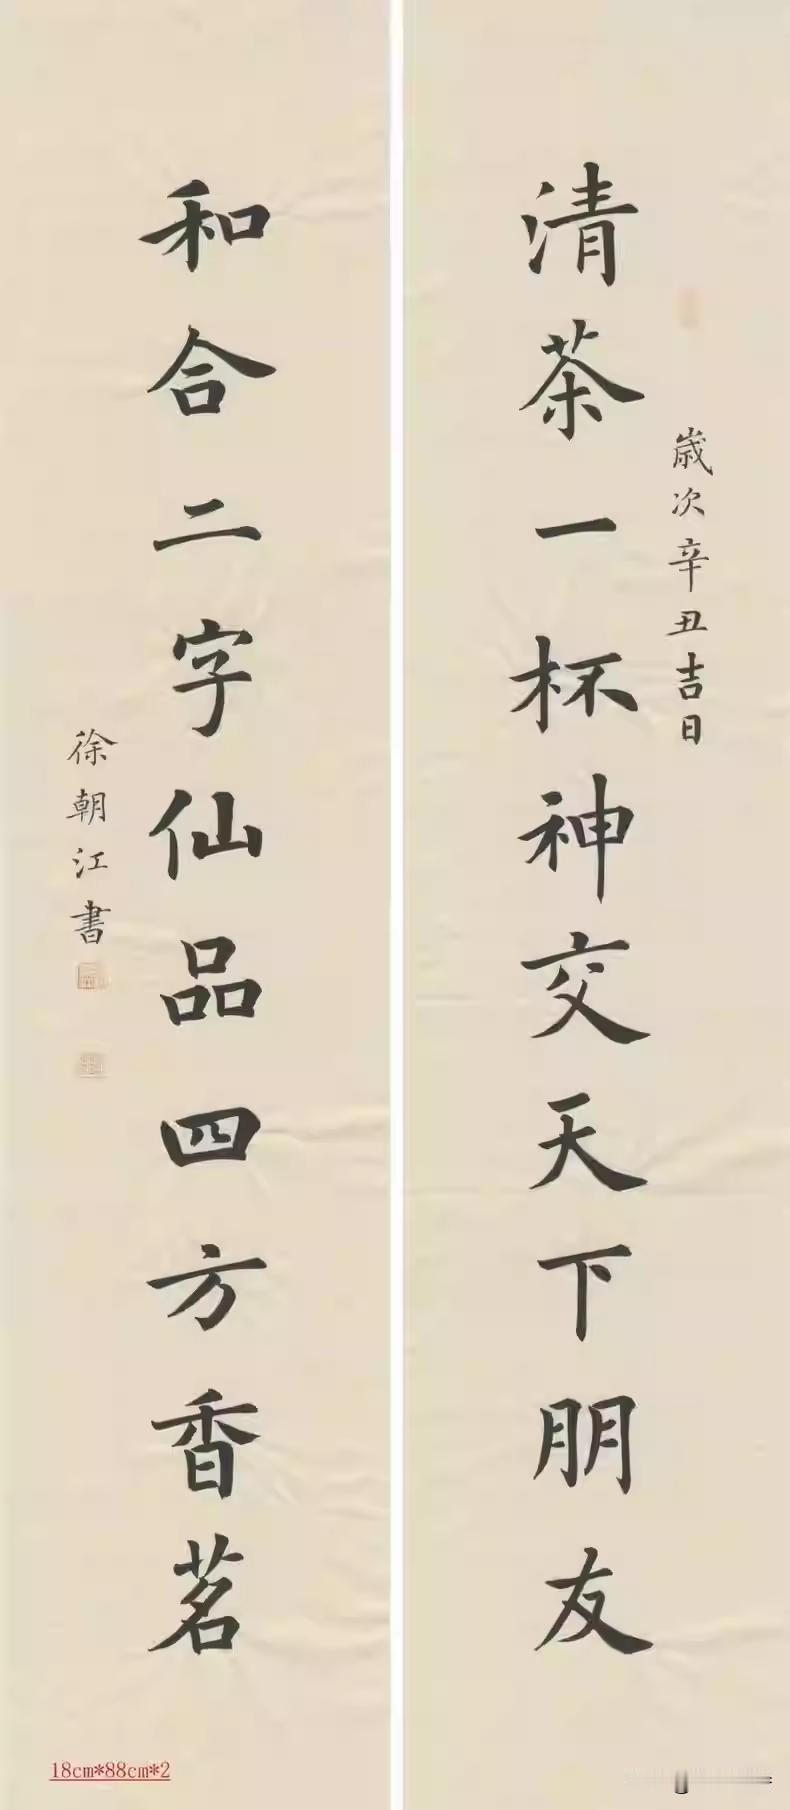 歲次辛丑吉日
清茶一杯神交天下朋友
和合二字仙品四方香茗
徐朝江書
18cm*88cm*2